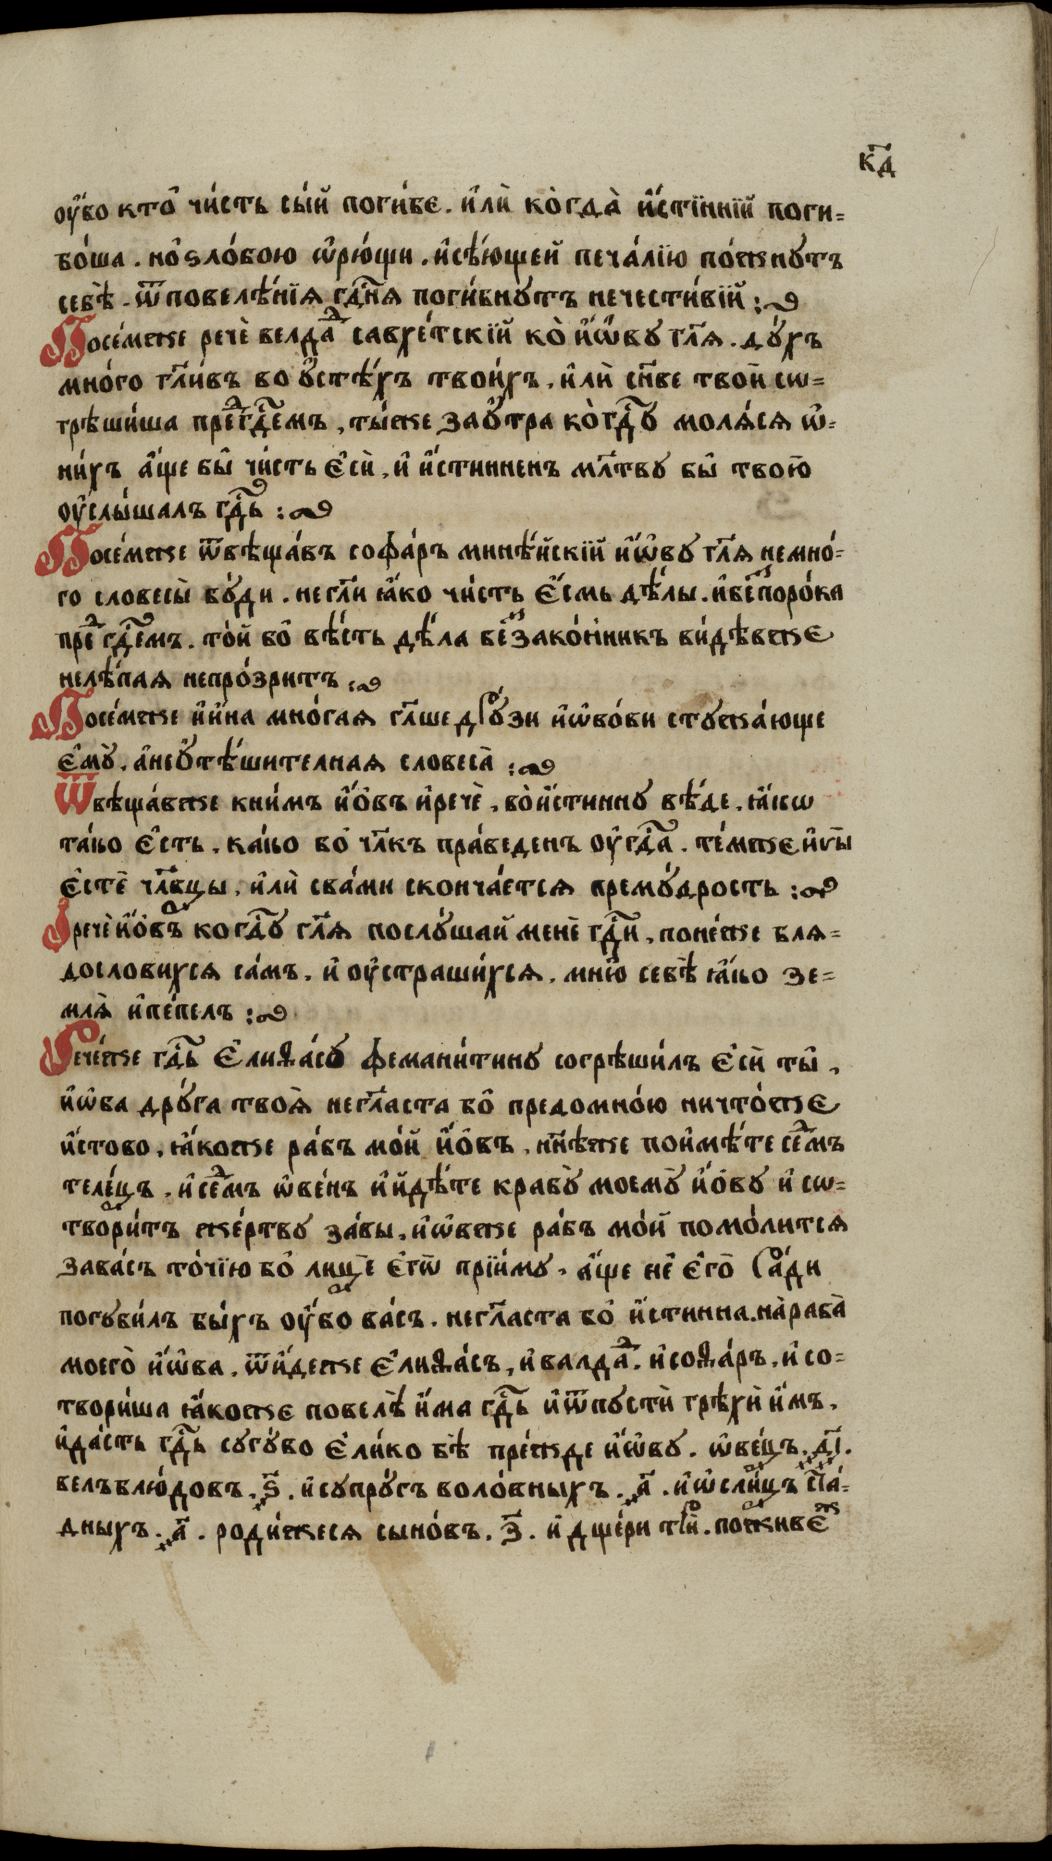 к҃д
оу҆́бо кто̀ чи́стъ сы́й поги́бе. и҆лѝ ко̀гда̀ и҆́стїннїй поги=
бо́ша. но̀ ѕло́бою ѡ҆рю́щи. и҆сѣ́ющей печа́лїю по́жнутъ
себѣ̀. ѿ повелѣ́нїѧ гдⷭ҇нѧ поги́бнутъ нечести́вїй :
Посе́мъже речѐ велдаⷣ савхе́тскїй ко̀ и҆́ѡ҆ву гл҃ѧ. ду́хъ
мно́го гл҃и́въ во ᲂу҆стѣ́хъ твои́хъ. и҆лѝ сн҃ве твоѝ со=
грѣши́ша преⷣ гдⷭ҇емъ, ты́же заᲂу҆́тра ко̀ гдⷭ҇у молѧ́сѧ ѡ҆=
ни́хъ а҆́ще бы̀ чи́стъ є҆сѝ. и҆ и҆́стинненъ мл҃тву бы̀ твою̀
оу҆слы́шалъ гдⷭ҇ь :
Посе́мъже ѿвѣща́въ софа́ръ мине́йскїй и҆́ѡ҆ву гл҃ѧ немно́=
го словесы̀ бу́ди. негл҃и ꙗ҆́ко чи́стъ є҆́смь дѣ́лы. и҆беⷥпоро́ка
преⷣ гдⷭ҇емъ. то́й бо̀ вѣ́сть дѣ́ла беⷥзако́нникъ ви́дѣвже
нелѣ́паѧ непро́зритъ.
Посе́мъже и҆и҆́на мно́гаѧ гл҃ше дрꙋ́зи и҆́ѡ҆во́ви стужа́юще
є҆мꙋ̀. а҆неᲂу҆тѣ́шителнаѧ словеса̀ :
Ѿвѣща́вже кни́мъ и҆́ѻ҆въ и҆речѐ, во̀и҆́стинну вѣ́де. ꙗ҆́кѡ
та́ко є҆́сть. ка́ко бо̀ чл҃къ пра́веденъ оу҆гдⷭ҇а. те́мъже и҆вы
є҆стѐ чл҃вцы, и҆лѝ сва́ми сконча́етсѧ премꙋ́дрость :
И речѐ и҆́ѻ҆въ когдⷭ҇у гл҃ѧ послꙋ́шай менѐ гдⷭ҇и, поне́же блѧ=
дословихсѧ са́мъ. и҆ оу҆страши́хсѧ. мню̀ себѐ ꙗ҆́ко зе=
млѧ̀ и҆пе́пелъ :
Рече́же гдⷭ҇ь є҆лиѳа́сꙋ феманити́ну согрѣши́лъ є҆сѝ ты̀,
и҆́ѡ҆ва дрꙋ́га твоѧ̀ негл҃аста бо̀ предомно́ю ничто́же
и҆́стово, ꙗ҆́коже ра́бъ мо́й и҆́ѻ҆въ. нн҃ѣже поимѣ́те сеⷣмъ
теле́цъ. и҆ сеⷣмъ ѡ҆ве́нъ и҆ и҆дѣ́те крабꙋ̀ моемꙋ̀ и҆́ѻ҆ву и҆ со=
твори́тъ же́ртву за́вы. и҆ѡ҆вже ра́бъ мо́й помо́литсѧ
зава́съ то́чїю бо̀ лицѐ є҆гѡ̀ прїи́му. а҆́ще нѐ є҆го̀ ра́ди
погуби́лъ бы́хъ оу҆́бо ва́съ. негл҃аста бо̀ и҆́стинна.на̀раба̀
моего̀ и҆́ѡ҆ва. ѿи́деже є҆лиѳа́съ, и҆ валдаⷣ. и҆ соѳа́ръ. и҆ со=
твори́ша ꙗ҆́коже повелѣ̀ и҆́ма гдⷭ҇ь и҆ ѿпустѝ грѣхѝ и҆́мъ.
и҆да́сть гдⷭ҇ь сугу́бо є҆ли́ко бѣ̀ пре́жде и҆́ѡ҆ву. ѡ҆ве́цъ. д҃і.
велъблю́довъ. ѕ҃. и҆ супрꙋ́гъ воло́вныхъ. а҃. и҆ ѡ҆сли́цъ ста́=
дныхъ. а҃. роди́жесѧ сыно́въ. з҃. и҆ дще́ри трѝ. поживеⷤ